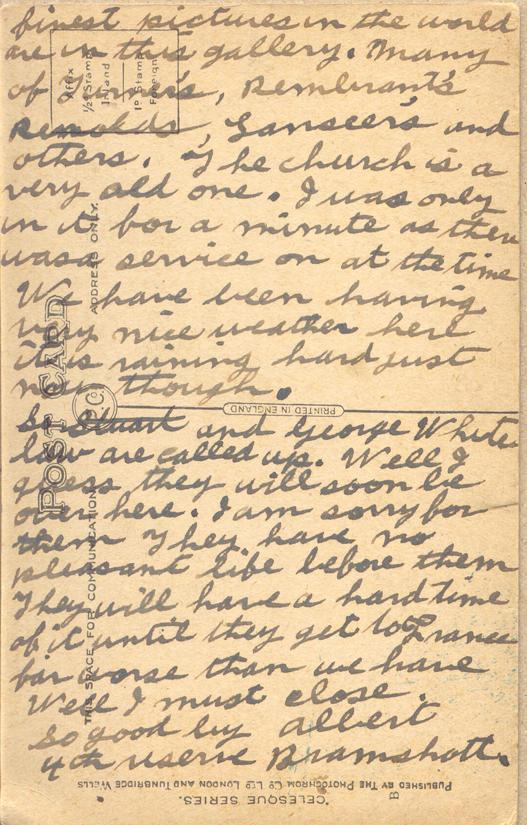 finest pictures in the world
are in this gallery. Many
of Turner's, Rembrant's
Renolds, Lanseer's and
others. The church is a
very old one. I was only
in it for a minute as there
was a service on at the time
We have been having
very nice weather here
it is raining hard just
now though.
So Stuart and George White
law are called up. Well I
guess they will soon be
over here. I am sorry for
them They have no
pleasant life before them
They will have a hard time
of it until they get to France
far worse than we have
Well I must close.
So good by Albert
4th reserve Bramshott.
POST CARD
THIS SPACE FOR COMMUNICATION
ADDRESS ONLY.
Affix
½d Stamp
Inland
1d Stamp
Foreign
P.C.
PRINTED IN ENGLAND
"CELESQUE SERIES."
PUBLISHED BY THE PHOTOCHROM CO LTD LONDON AND TUNBRIDGE WELLS
B